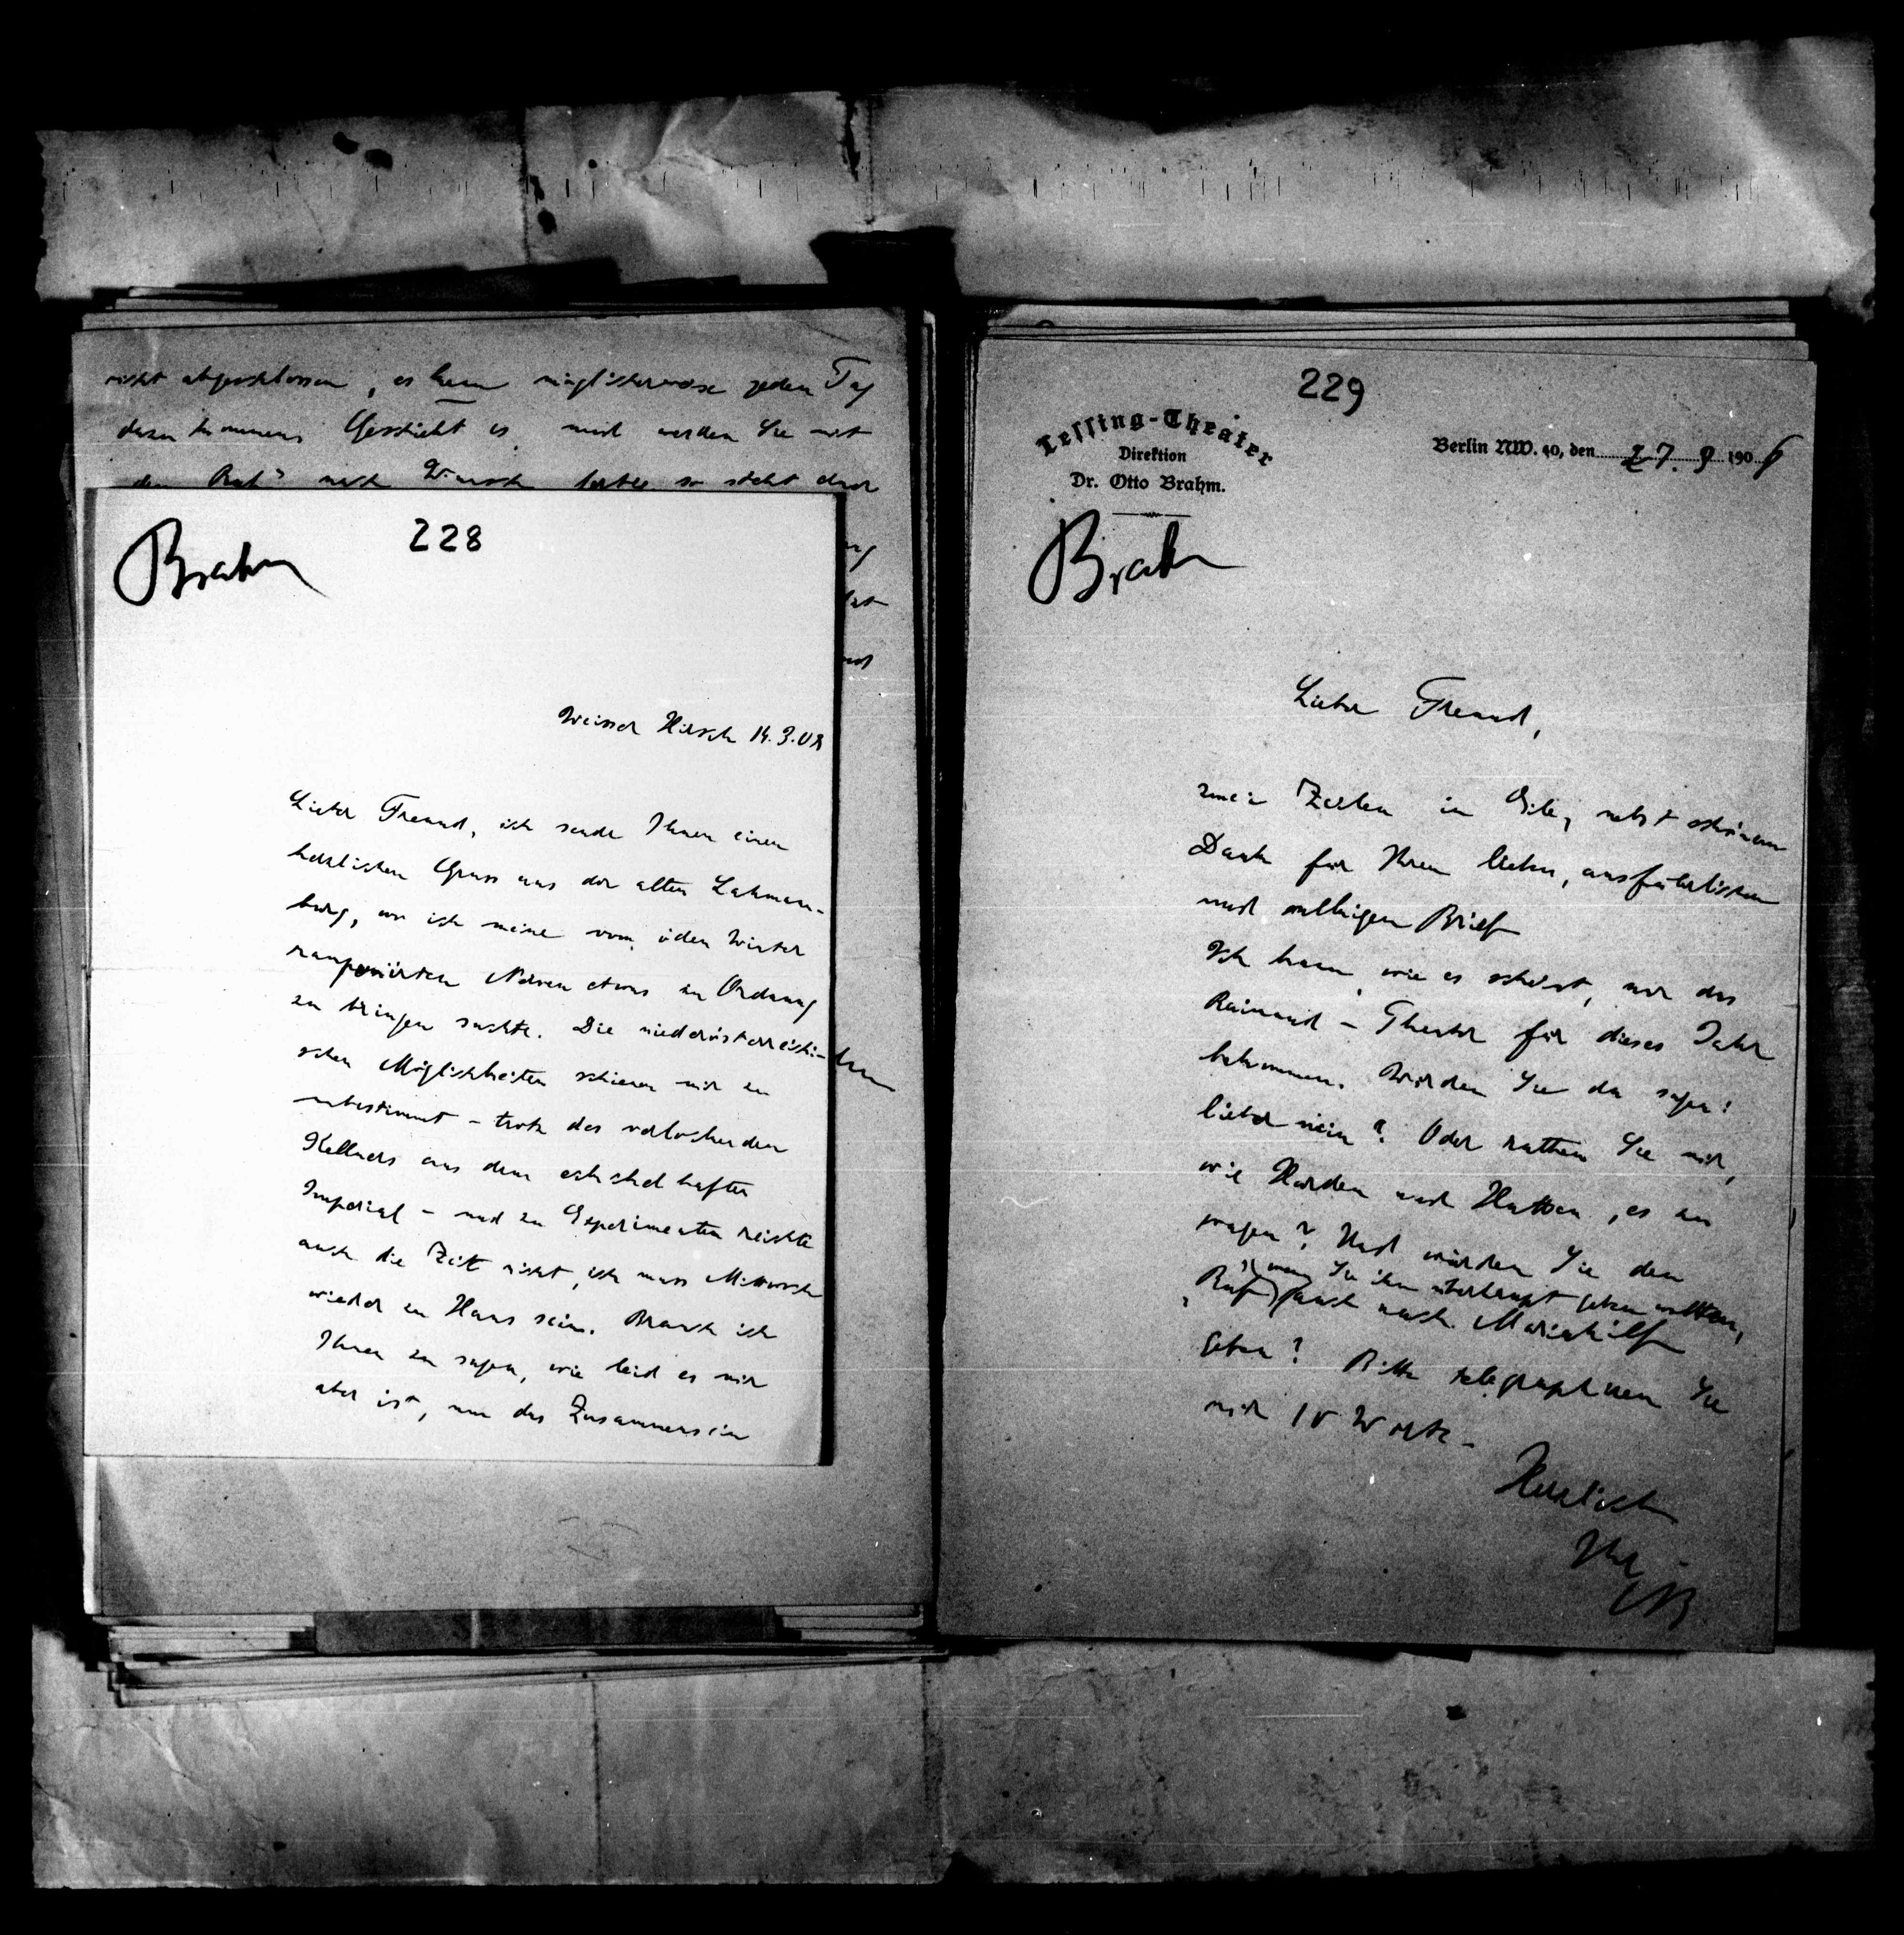 nicht abgeschlossen, es kann möglicherweise jeden Tag
dazu kommen. Geschieht es und werden Sie mit
dem Ruf nach Wunsch fertig, so steht
228
Brahm
Weisser Hirsch 14.3.08
Lieber Freund, ich sende Ihnen einen
herzlichen Gruss aus der alten Lahmann-
burg, wo ich meine vom öden Winter
ramponirten Nerven etwas in Ordnung
zu bringen suchte. Die niederösterreichi-
schen Möglichkeiten schienen mir zu
unbestimmt - trotz des verlockenden
Kellners aus dem ekelhaften
Imperial - und zu Experimenten reichte
auch die Zeit nicht, ich muss Mittwoch
wieder zu Haus sein. Brauch ich
Ihnen zu sagen, wie leid es mir
aber ist, um das Zusammensein
229
Lessing-Theater
Direktion
Dr. Otto Brahm.
Berlin NW. 40, den 27. 9 1906
Brahm
Lieber Freund,
zwei Zeilen in Eile, nebst schönem
Dank für Ihren lieben, ausführlichen
und Brief
Ich kann, wie es scheint, nur das
Raimund-Theater für dieses Jahr
bekommen. Würden Sie da sagen:
lieber nein? Oder rathen Sie mir,
wie Harden und es zu
wagen? Und würden Sie den
wenn Sie ihn überhaupt geben wollten,
"Ruf" auch nach Mariahilf
geben? Bitte telegraphiren Sie
mir 10 Worte -
Herzlich
Ihr
OB